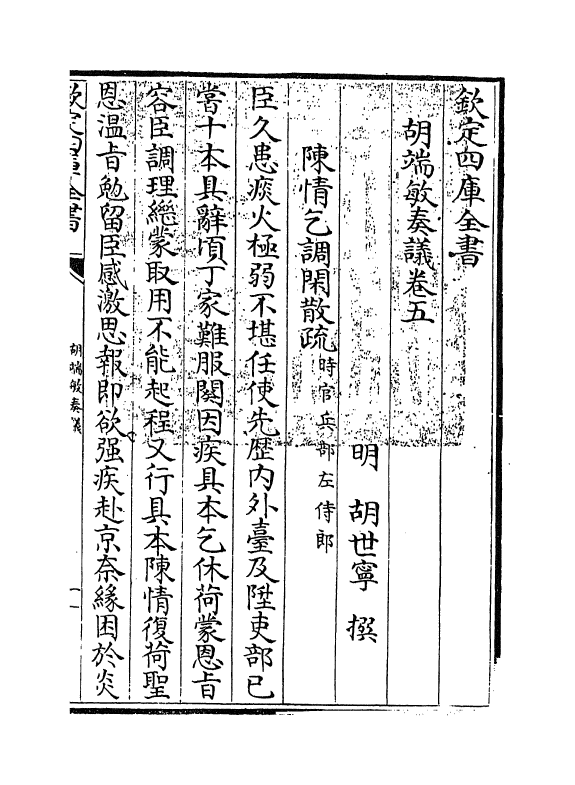 欽定四庫全書
胡端敏奏議卷五
明 胡世寧 撰
陳情乞調閑散疏時官兵部左侍郎
臣久患痰火極弱不堪任使先歴内外臺及陞吏部已
嘗十本具辭頃丁家難服闋因疾具本乞休荷蒙恩㫖
容臣調理繼蒙取用不能起程又行具本陳情復荷聖
恩溫㫖勉留臣感激思報即欲强疾赴京奈緣困於炎
欽定四庫全書
胡端敏奏議
一